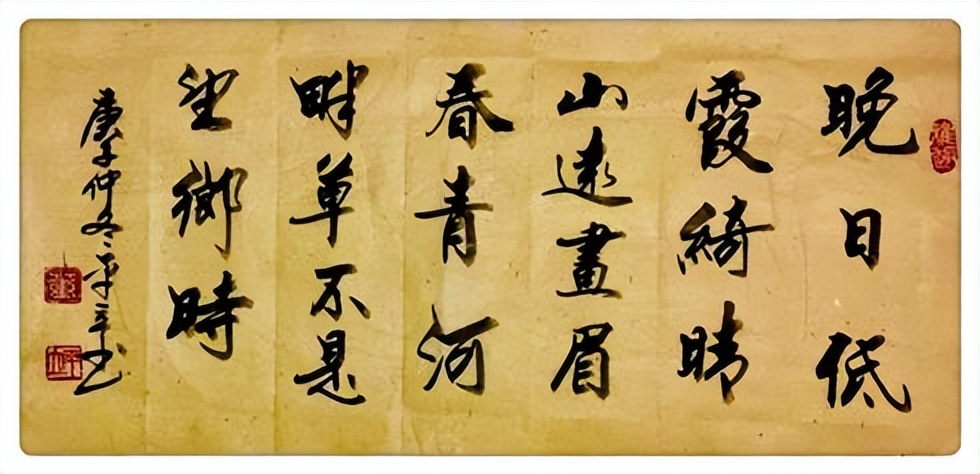 晚日低
霞綺晴
山遠畫眉
春青河
畔草不是
望鄉時
庚子仲冬